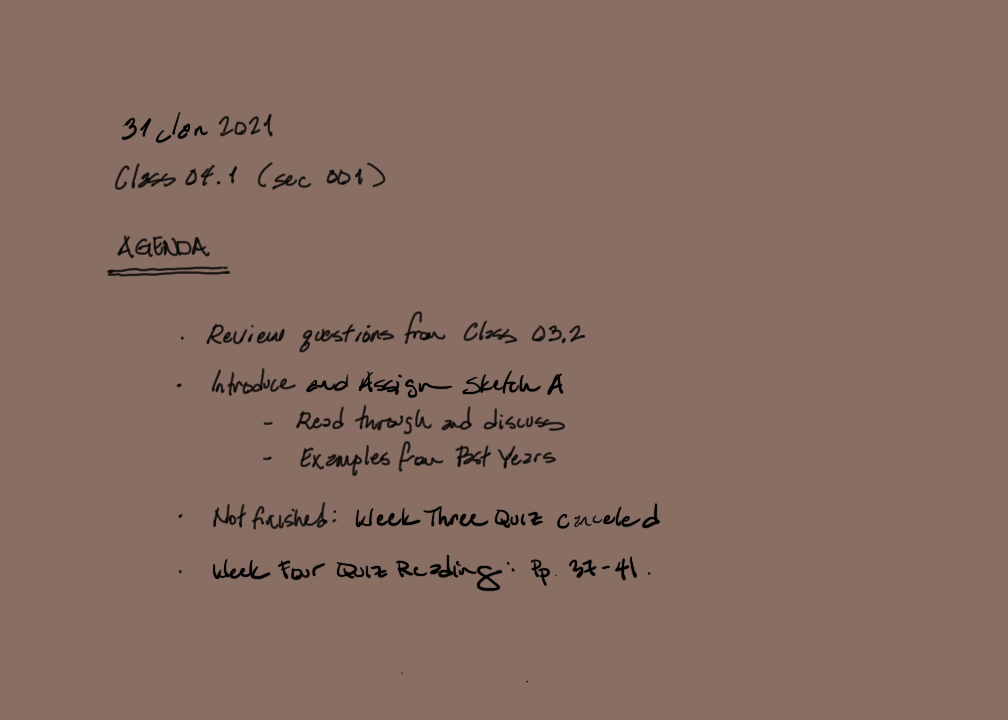 31 Jan 2021
Class 04.1 (sec 001)
AGENDA
· Review questions from Class 03.2
· Introduce and Assign Sketch A
- Read through and discuss
- Examples from Past Years
· Not finished: Week Three Quiz canceled
· Week Four Quiz Reading: Pp. 37-41.